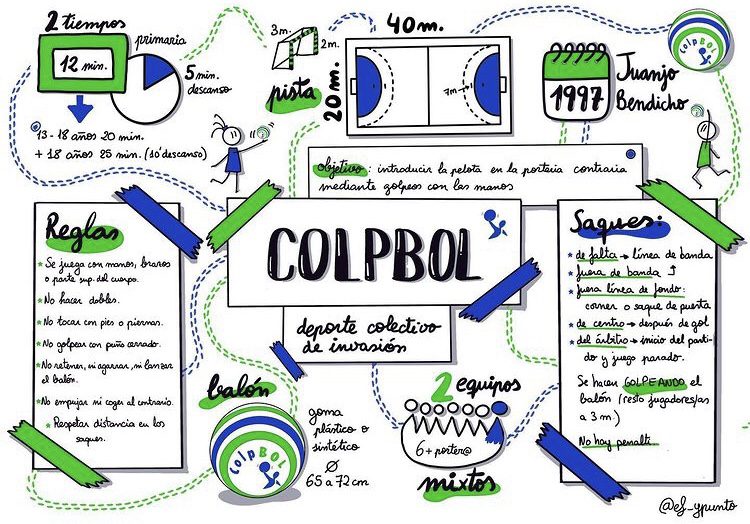 2 tiempos
primaria
12 min.
5 min.
descanso
13 - 18 años 20 min.
+ 18 años 25 min. (10' descanso)
3m.
2m.
pista
40 m.
20 m.
7m
1997
Juanjo
Bendicho
colpBOL
objetivo: introducir la pelota en la portería contraria
mediante golpeos con las manos
COLPBOL
deporte colectivo
de invasión
Reglas
* Se juega con manos, brazos
o parte sup. del cuerpo.
* No hacer dobles.
* No tocar con pies o piernas.
* No golpear con puño cerrado.
* No retener, ni agarrar, ni lanzar
el balón.
* No empujar ni coger al contrario.
* Respetar distancia en los
saques.
balón
colpBOL
goma
plástico o
sintético
Ø
65 a 72 cm
2 equipos
6 + porter@
mixtos
Saques:
* de falta → línea de banda
* fuera de banda ↑
* fuera línea de fondo:
corner o saque de puerta
* de centro → después de gol
* del árbitro → inicio del parti-
do y juego parado.
Se hacen GOLPEANDO el
balón (resto jugadores/as
a 3 m.)
No hay penalti.
@ef_ypunto